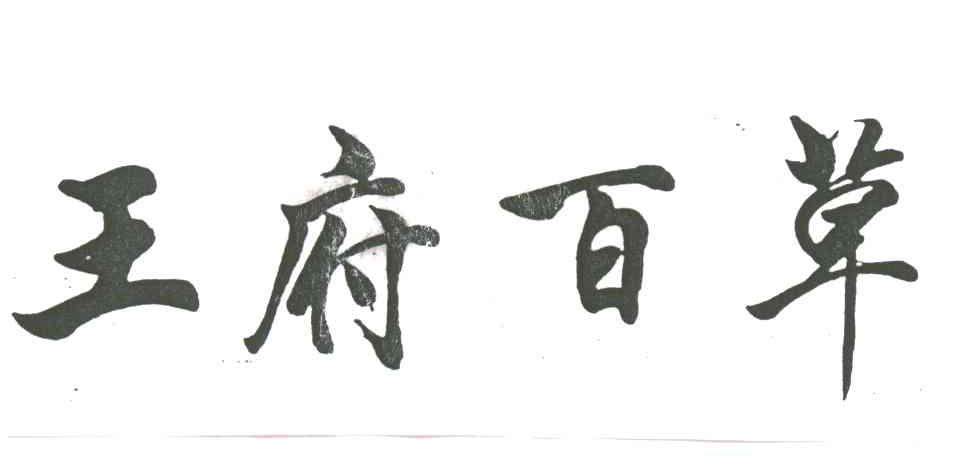 王府百草